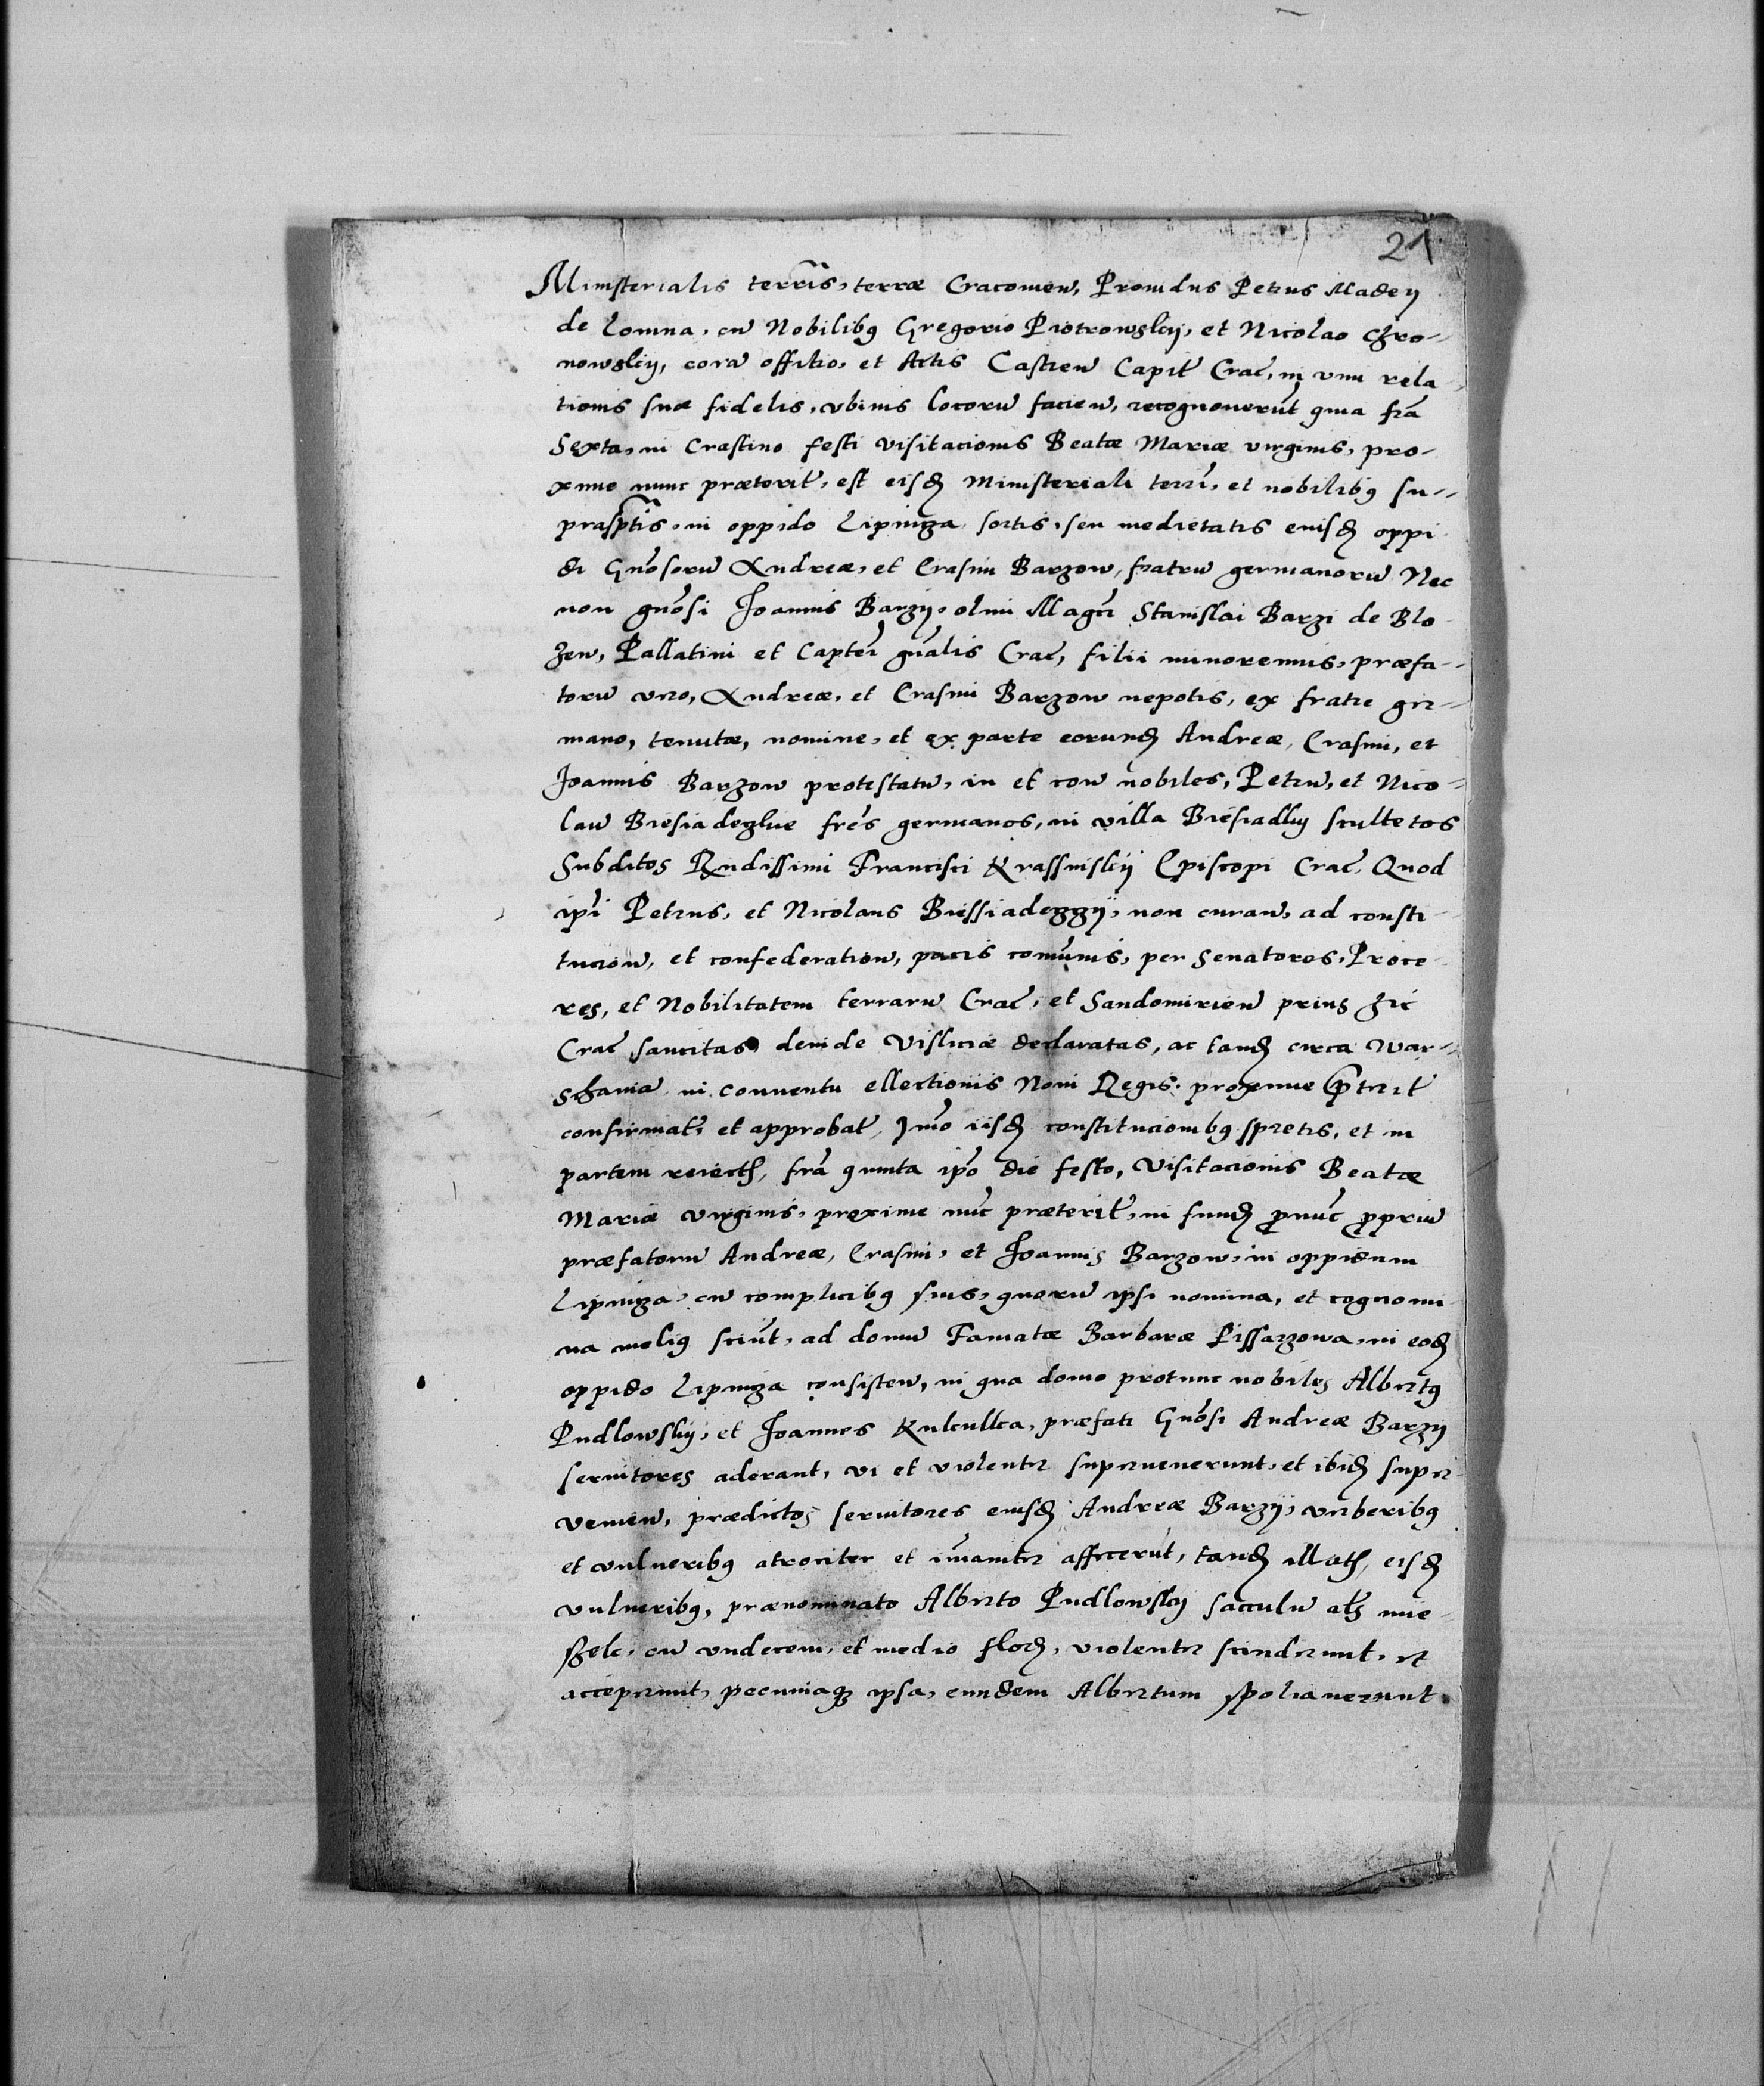 21
Ministerialis terrīs, terræ Cracovien, Providus Petrus Madey
de Lomna, cū Nobilibꝫ Gregorio Piotrowsky, et Nicolao Chro-
nowsky, corā offitio, et Actis Castren Capit Crac, in vim rela
tionis suæ fidelis, vbivis locorū facien, recognoverūt quia frā
Sexta, in Crastino festi visitacionis Beatæ Mariæ virginis, pro-
xime nunc præterit, est eisd Ministeriali terri, et nobilibꝫ su-
prasptis, in oppido Lipniga sortis, seu medietatis eiusd oppi
di Gnosorū Andreæ, et Erasmi Barzow, fratrū germanorū Nec
non gnosi Joannis Barzy, olim Magci Stanislai Barzi de Blo
zew, Pallatini et Captei gnalis Crac, filii minorennis, præfa-
torū vro, Andreæ, et Erasmi Barzow nepotis, ex fratre gr-
mano, tenutæ, nomine, et ex parte eorund Andreæ, Erasmi, et
Joannis Barzow protestatū, in et con nobiles, Petrū, et Nico-
laū Biesiadezkie frēs germanos, in villa Biesiadky scultetos
Subditos Rndissimi Francisci Krassinskij Episcopi Crac, Quod
ipi Petrus, et Nicolaus Biessiadeggij, non curan, ad consti-
tucion, et confederation, pacis comūnis, per Senatores, Proce
res, et Nobilitatem terrarū Crac, et Sandomirien prius hic
Crac sancitas deinde Visliciæ declaratas, ac tand circa War-
schaviā in conventu ellectionis Novi Regis proxime prtrit
confirmat, et approbat, Imo iisd constitucionibꝫ spretis, et in
partem reiect, frā quinta ipō die festo, Visitacionis Beatæ
Mariæ virginis, proxime nūc præterit, in fund pronūc propriū
præfatorū Andreæ, Erasmi, et Joannis Barzow, in oppidum
Lipniga, cū complicibꝫ suis, quorū ipsi nomina, et cognomi
na meliꝫ sciūt, ad domū Famatæ Barbaræ Pissarzowa, in eod
oppido Lipniga consisten, in qua domo protunc nobiles Albrtꝫ
Pudlowsky, et Joannes Kulcullca, præfati Gnosi Andreæ Barzy
servitores aderant, vi et violentr suprvenerunt, et ibid supr
venien, prædictos servitores eiusd Andreæ Barzij, vrberibꝫ
et vulneribꝫ atrociter et imanitr affecerūt, tand illat, eisd
vulneribꝫ, prænominato Albrto Pudlowsky sacculū als mie
szek, cū vndecem, et medio flor, violentr scindrunt, et
acceprunt, pecuniaqꝫ ipsa, eundem Albrtum spoliaverunt